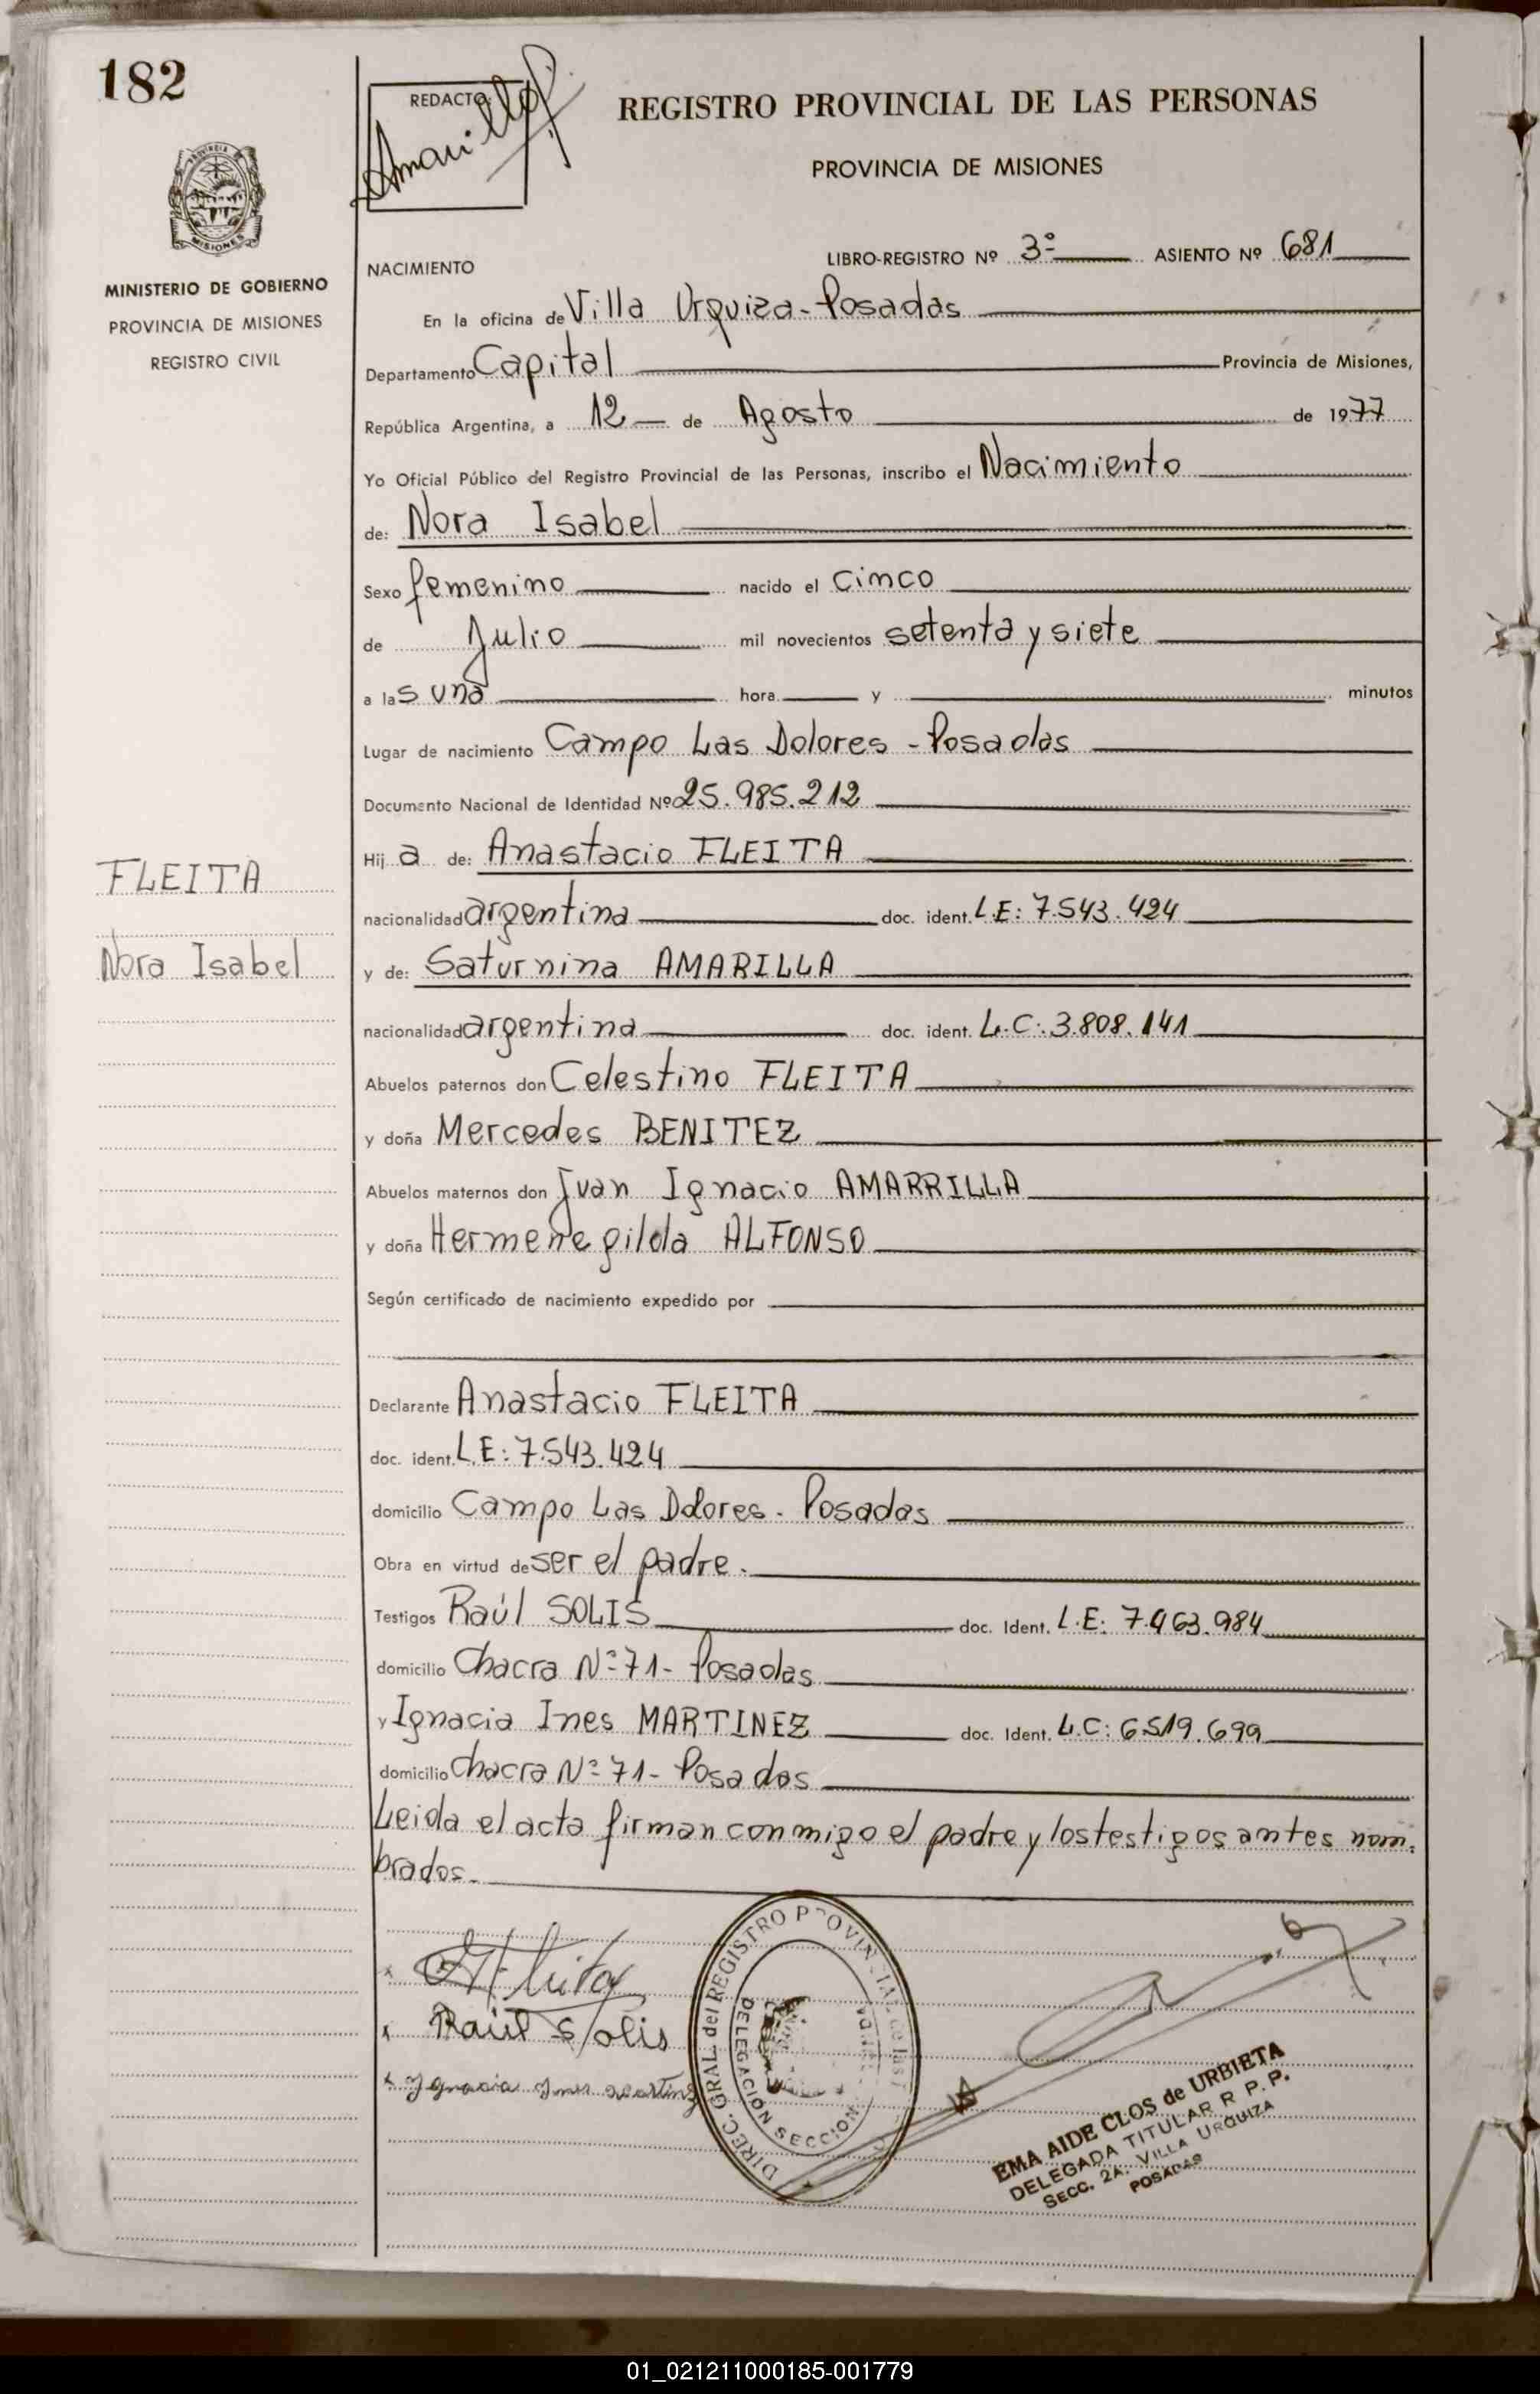 182
REDACTO:
Amarilla
REGISTRO PROVINCIAL DE LAS PERSONAS
PROVINCIA DE MISIONES
PROVINCIA DE
MISIONES
MINISTERIO DE GOBIERNO
PROVINCIA DE MISIONES
REGISTRO CIVIL
LIBRO-REGISTRO Nº 3º ASIENTO Nº 681
NACIMIENTO
En la oficina de Villa Urquiza - Posadas
Departamento Capital Provincia de Misiones,
República Argentina, a 12 de Agosto de 1977
Yo Oficial Público del Registro Provincial de las Personas, inscribo el Nacimiento
de: Nora Isabel
Sexo femenino nacido el cinco
de Julio mil novecientos setenta y siete
a las una hora y minutos
Lugar de nacimiento Campo Las Dolores - Posadas
Documento Nacional de Identidad Nº 25.985.212
Hija de: Anastacio FLEITA
FLEITA
nacionalidad argentina doc. ident. L.E: 7.543.424
Nora Isabel
y de: Saturnina AMARILLA
nacionalidad argentina doc. ident. L.C: 3.808.141
Abuelos paternos don Celestino FLEITA
y doña Mercedes BENITEZ
Abuelos maternos don Juan Ignacio AMARRILLA
y doña Hermenegilda ALFONSO
Según certificado de nacimiento expedido por
Declarante Anastacio FLEITA
doc. ident. L.E: 7.543.424
domicilio Campo Las Dolores - Posadas
Obra en virtud de ser el padre.
Testigos Raúl SOLIS doc. Ident. L.E: 7.463.984
domicilio Chacra Nº 71 - Posadas
y Ignacia Ines MARTINEZ doc. Ident. L.C: 6.519.699
domicilio Chacra Nº 71 - Posadas
Leida el acta firman conmigo el padre y los testigos antes nom-
brados.
x A Fleita
x Raúl Solis
x Ygnacia Ynes Martinez
DIREC. GRAL. del REGISTRO PROVINCIAL de las
DELEGACIÓN SECCION
EMA AIDE CLOS de URBIETA
DELEGADA TITULAR R P. P.
SECC. 2A. VILLA URQUIZA
POSADAS
01_021211000185-001779